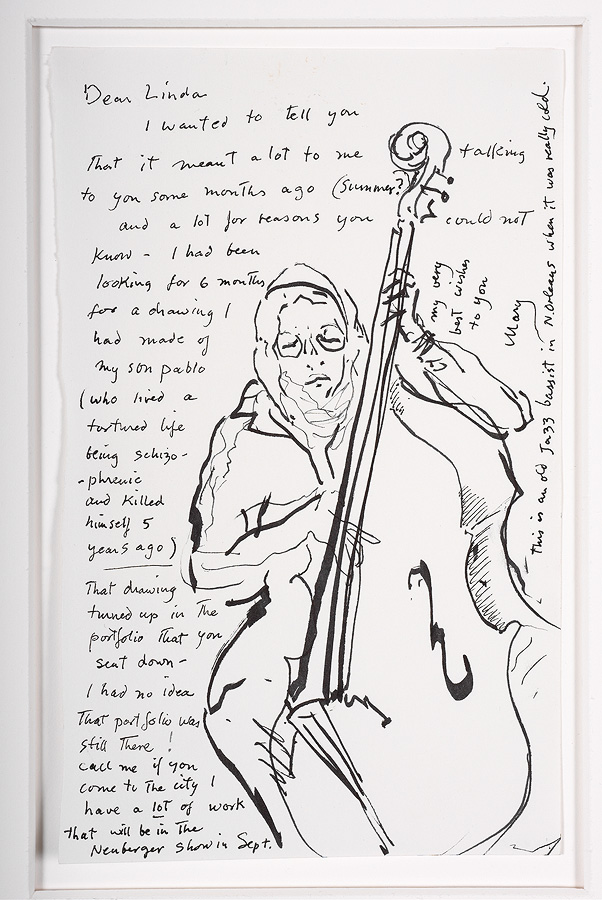 Dear Linda
I wanted to tell you
That it meant a lot to me talking
to you some months ago (Summer?)
and a lot for reasons you could not
know - I had been
looking for 6 months
for a drawing I
had made of
my son pablo
(who lived a
tortured life
being schizo-
-phrenic
and killed
himself 5
years ago)
That drawing
turned up in The
portfolio That you
sent down -
I had no idea
That portfolio was
still There!
call me if you
come to The city I
have a lot of work
that will be in The
Neuberger show in Sept.
my very
best wishes
to you
Mary
- This is an old Jazz bassist in N. Orleans when it was really cold.